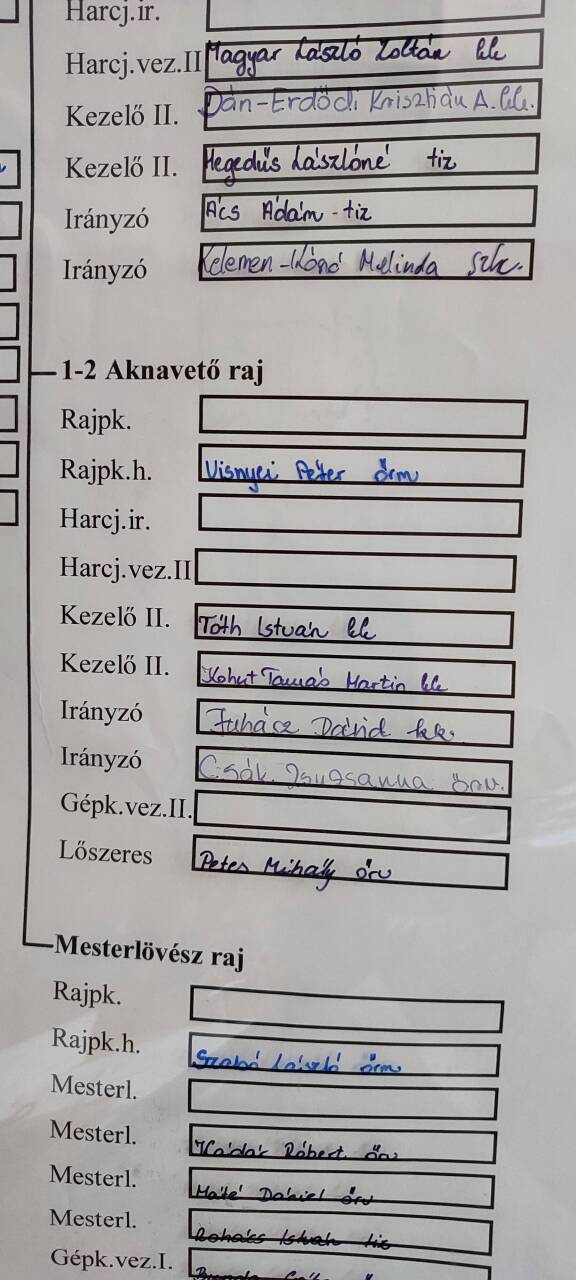 Harcj.ir.
Harcj.vez.II Magyar László Zoltán kk
Kezelő II. Dán-Erdődi Krisztián A. kk.
Kezelő II. Hegedűs Lászlóné tiz
Irányzó Ács Ádám - tiz
Irányzó Kelemen-Kónó Melinda szk.
1-2 Aknavető raj
Rajpk.
Rajpk.h. Visnyei Péter őrm
Harcj.ir.
Harcj.vez.II
Kezelő II. Tóth István kk
Kezelő II. Kohut Tamás Martin kk
Irányzó Juhácz Dávid kk.
Irányzó Csák Zsuzsanna őrv.
Gépk.vez.II.
Lőszeres Petes Mihály őrv
Mesterlövész raj
Rajpk.
Rajpk.h. Szabó László őrm
Mesterl.
Mesterl. Kádár Róbert őrv
Mesterl. Máté Dániel őrv
Mesterl. Rohács István tiz
Gépk.vez.I.